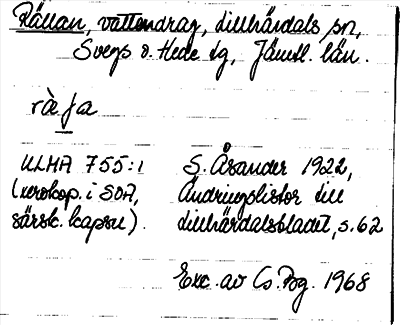 Rällan, vattendrag, Lillhärdals sn,
Svegs o. Hede tg, Jämtl. län.
ULMA 755:1 S. Åsander 1922,
(xerokop. i SOA, Ändringslistor till
särsk. kapsel). Lillhärdalsbladet, s. 62
Exc. av Cs. Bg. 1968